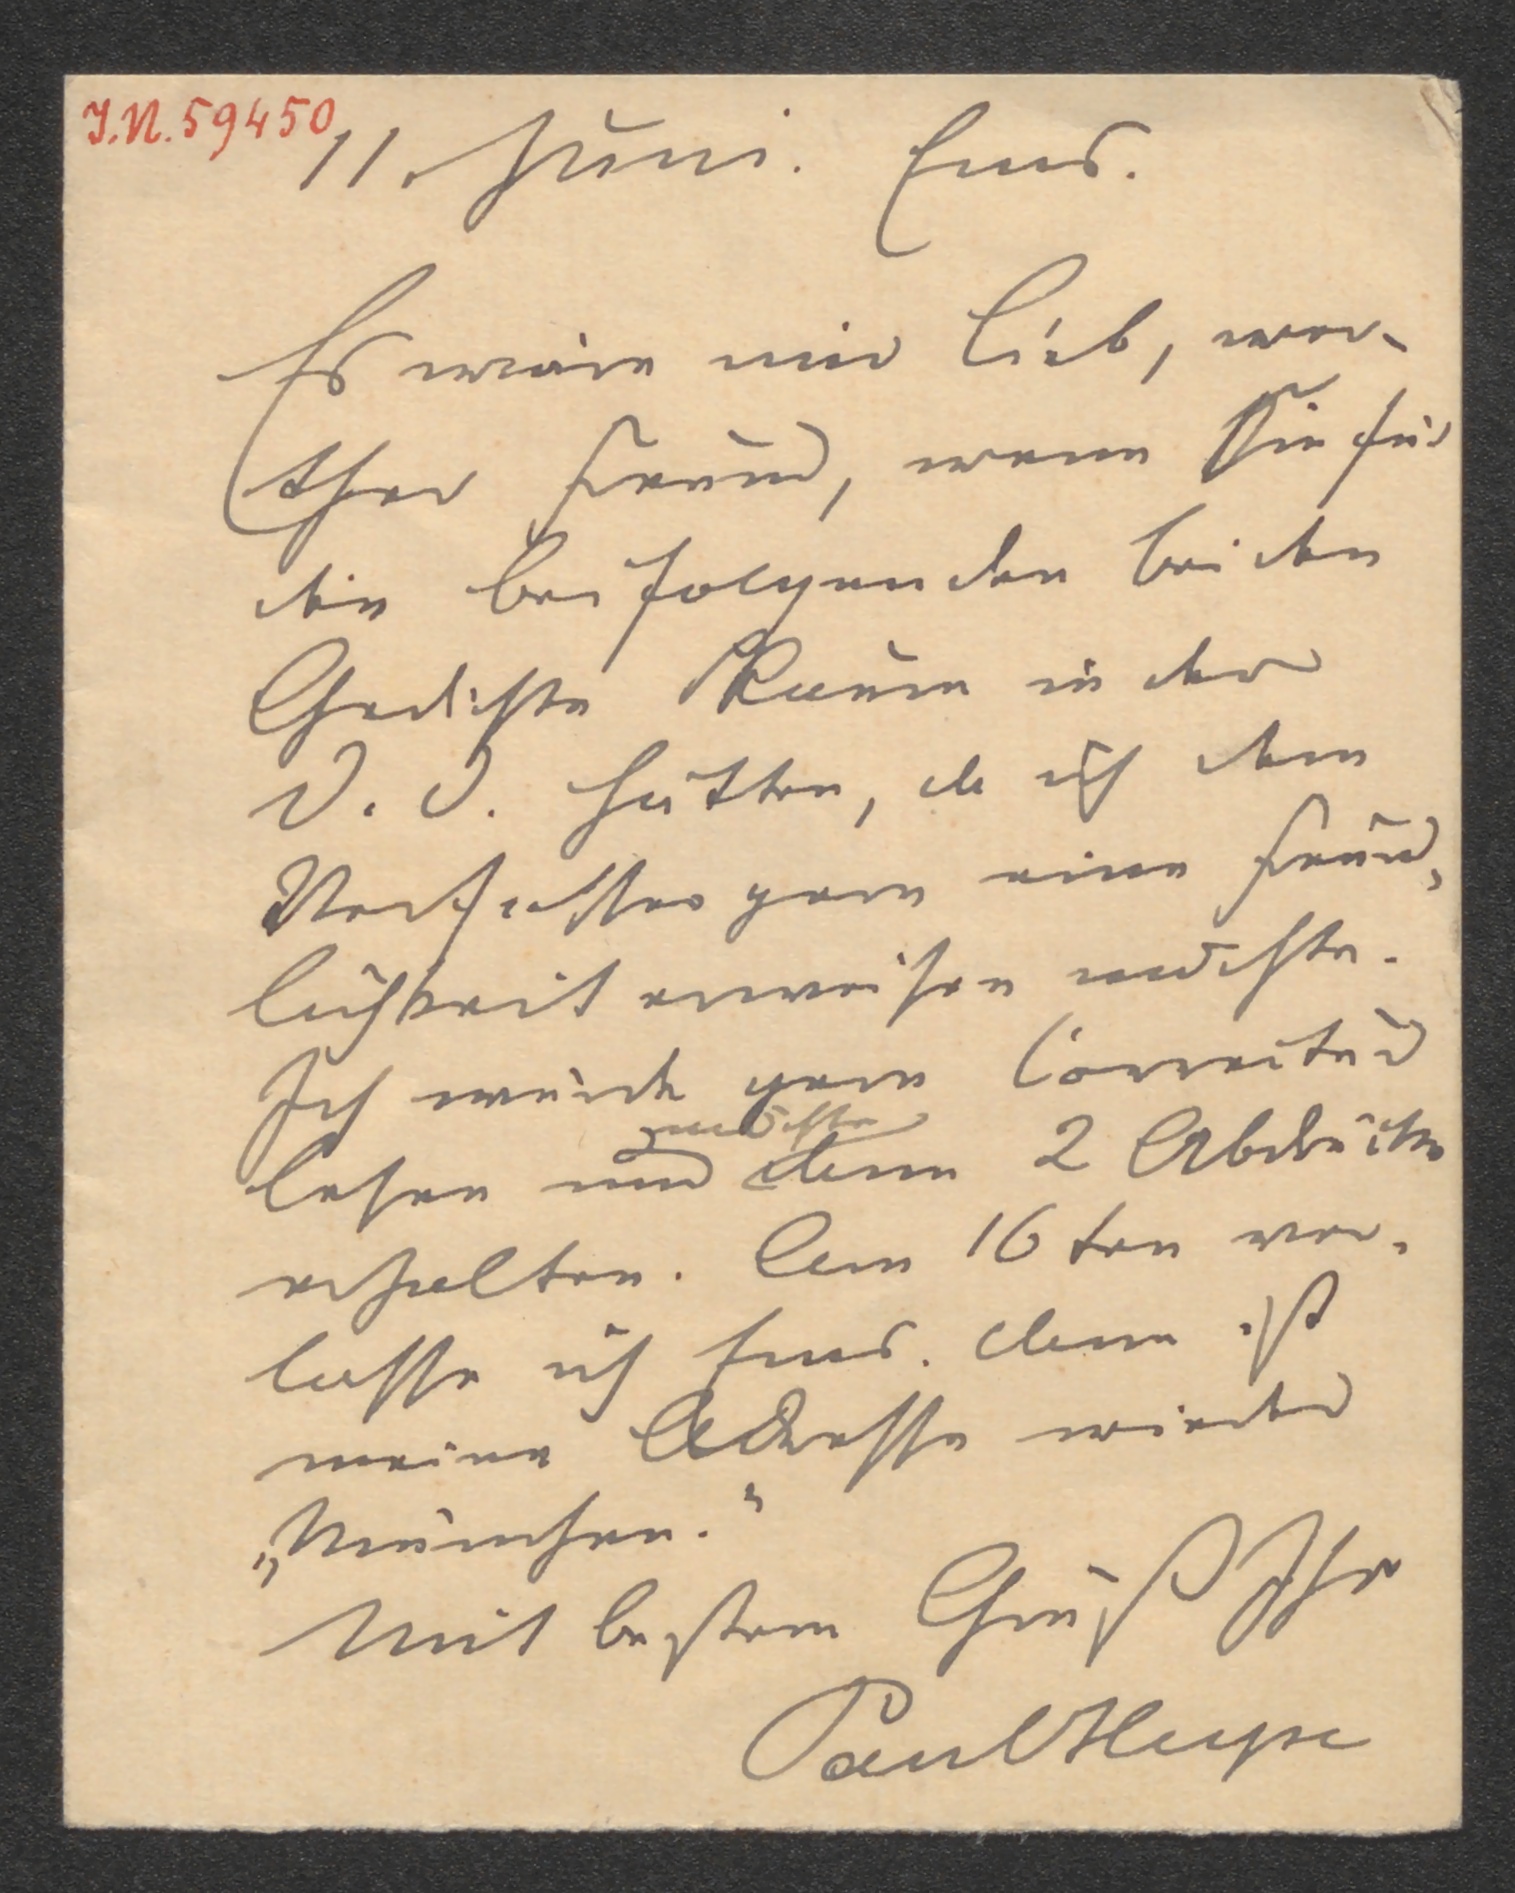 J.N. 59450
11. Juni. Ems.
Es wäre mir lieb, wer-
ther Freund, wenn Sie für
die beifolgenden beiden
Gedichte Raum in der
D. D. hätten, da ich dem
Verfasser gern eine Freund-
lichkeit erweisen möchte.
Ich würde gern Correctur
lesen und dann 2 Abdrücke
erhalten. Am 16ten ver-
lasse ich Ems. dann ist
meine Adresse wieder
„München."
Mit bestem Gruß Ihr
Paul Heyse